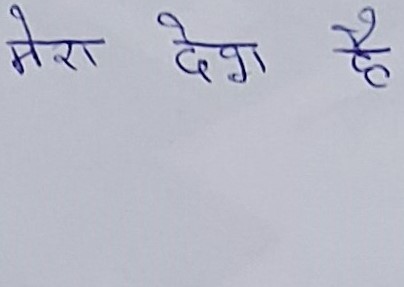 मेरा देश है